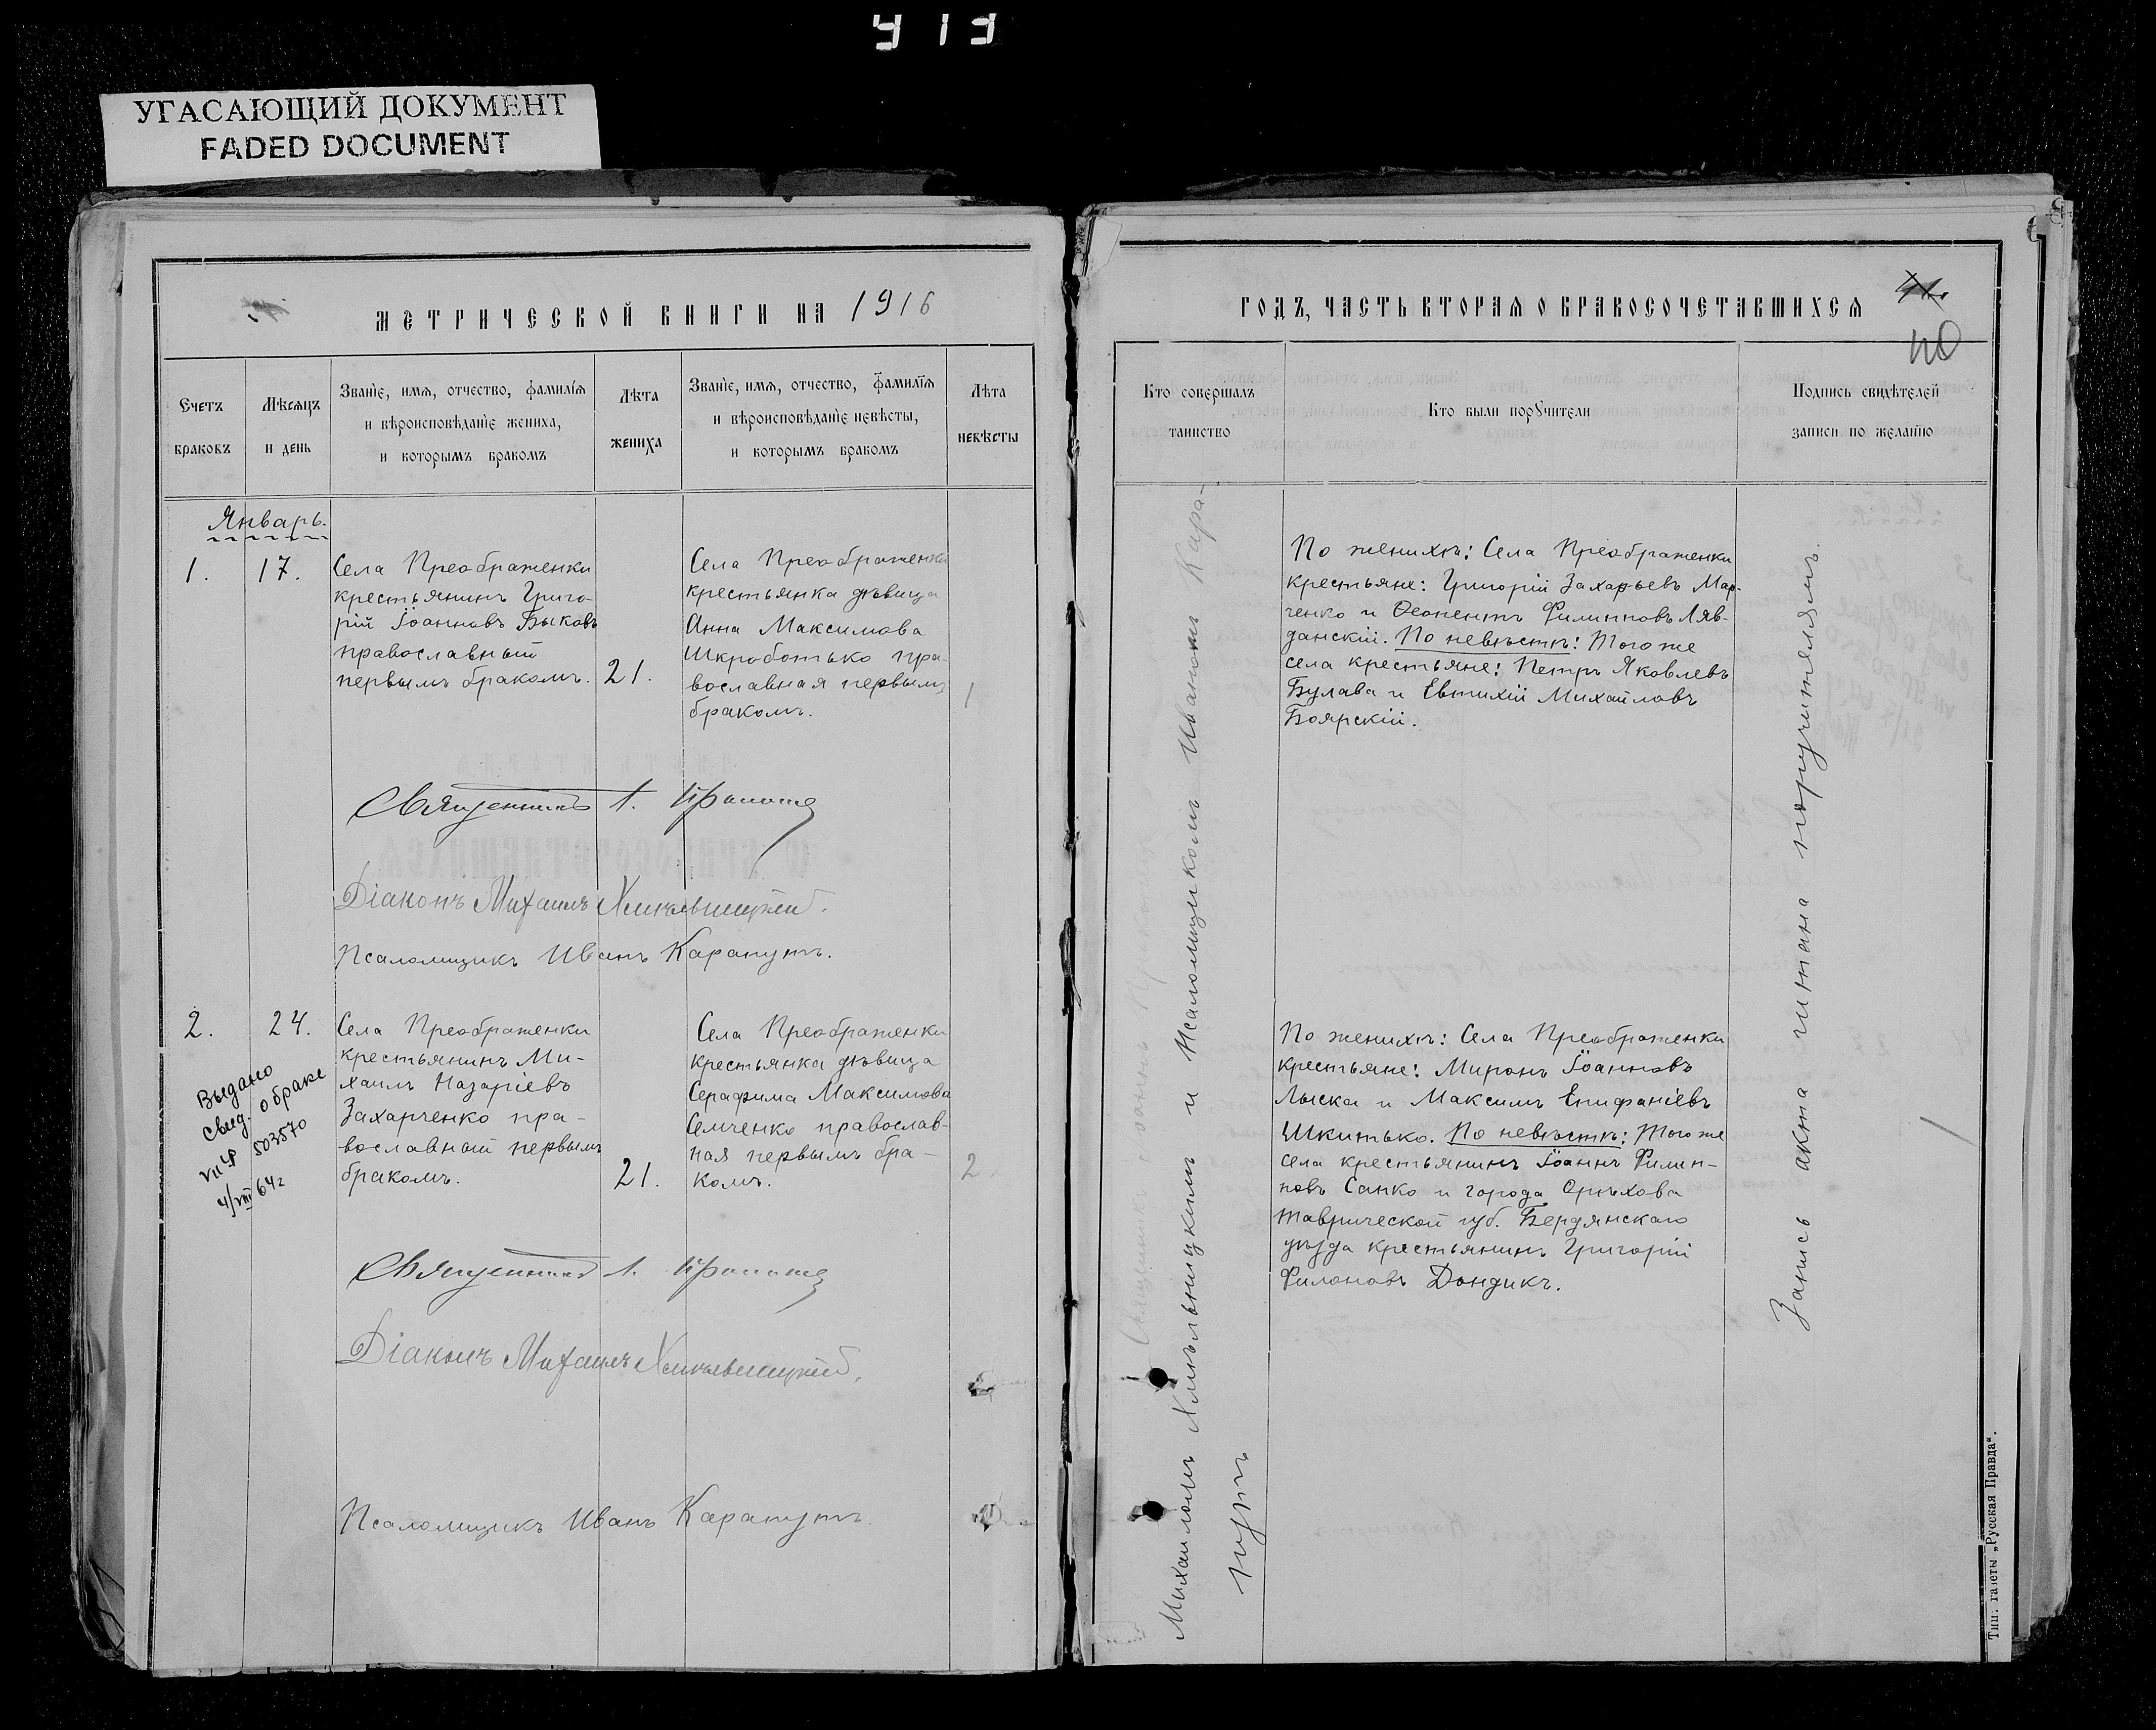 413
УГАСАЮЩИЙ ДОКУМЕНТ
FADED DOCUMENT
МЕТРИЧЕСКОЙ КНИГИ НА 1916
Счетъ браковъ
Мѣсяцъ и день
Званіе, имя, отчество, фамилія
и вѣроисповѣданіе жениха,
и которымъ бракомъ
Лѣта жениха
Званіе, имя, отчество, фамилія
и вѣроисповѣданіе невѣсты,
и которымъ бракомъ
Лѣта невѣсты
Январь.
1.
17.
Села Преображенки
крестьянинъ Григо-
рій Іоанновъ Быковъ
православный
первымъ бракомъ.
21.
Села Преображенки
крестьянка дѣвица
Анна Максимова
Шкроботько пра-
вославная первымъ
бракомъ.
1
Священникъ
Діаконъ Михаилъ Хмѣльницкій.
Псаломщикъ Иванъ Карапутъ.
2.
24.
Выдано
свид. о браке
503570
4/VIII 64г
Села Преображенки
крестьянинъ Ми-
хаилъ Назаріевъ
Захарченко пра-
вославный первымъ
бракомъ.
21.
Села Преображенки
крестьянка дѣвица
Серафима Максимова
Семченко православ-
ная первымъ бра-
комъ.
2
Священникъ
Діаконъ Михаилъ Хмѣльницкій.
Псаломщикъ Иванъ Карапутъ.
ГОДЪ, ЧАСТЬ ВТОРАЯ О БРАКОСОЧЕТАВШИХСЯ
40
Кто совершалъ
таинство
Кто были поручители
Подпись свидѣтелей
записи по желанію
Михаиломъ Хмѣльницкимъ и Псаломщикомъ Иваномъ Кара-
путъ
По женихѣ: Села Преображенки
крестьяне: Григорій Захарьевъ Мар-
ченко и Филипповъ Ляв-
данскій. По невѣстѣ: Того же
села крестьяне: Петръ Яковлевъ
Булава и Евтихій Михайловъ
Боярскій.
По женихѣ: Села Преображенки
крестьяне: Миронъ Іоанновъ
Лыска и Максимъ Епифаніевъ
Шкитько. По невѣстѣ: Того же
села крестьянинъ Іоаннъ Филип-
повъ Санко и города Орѣхова
Таврической губ. Бердянскаго
уѣзда крестьянинъ Григорій
Филоновъ Дондикъ.
Запись акта читана поручителямъ.
Тип. газеты „Русская Правда“.